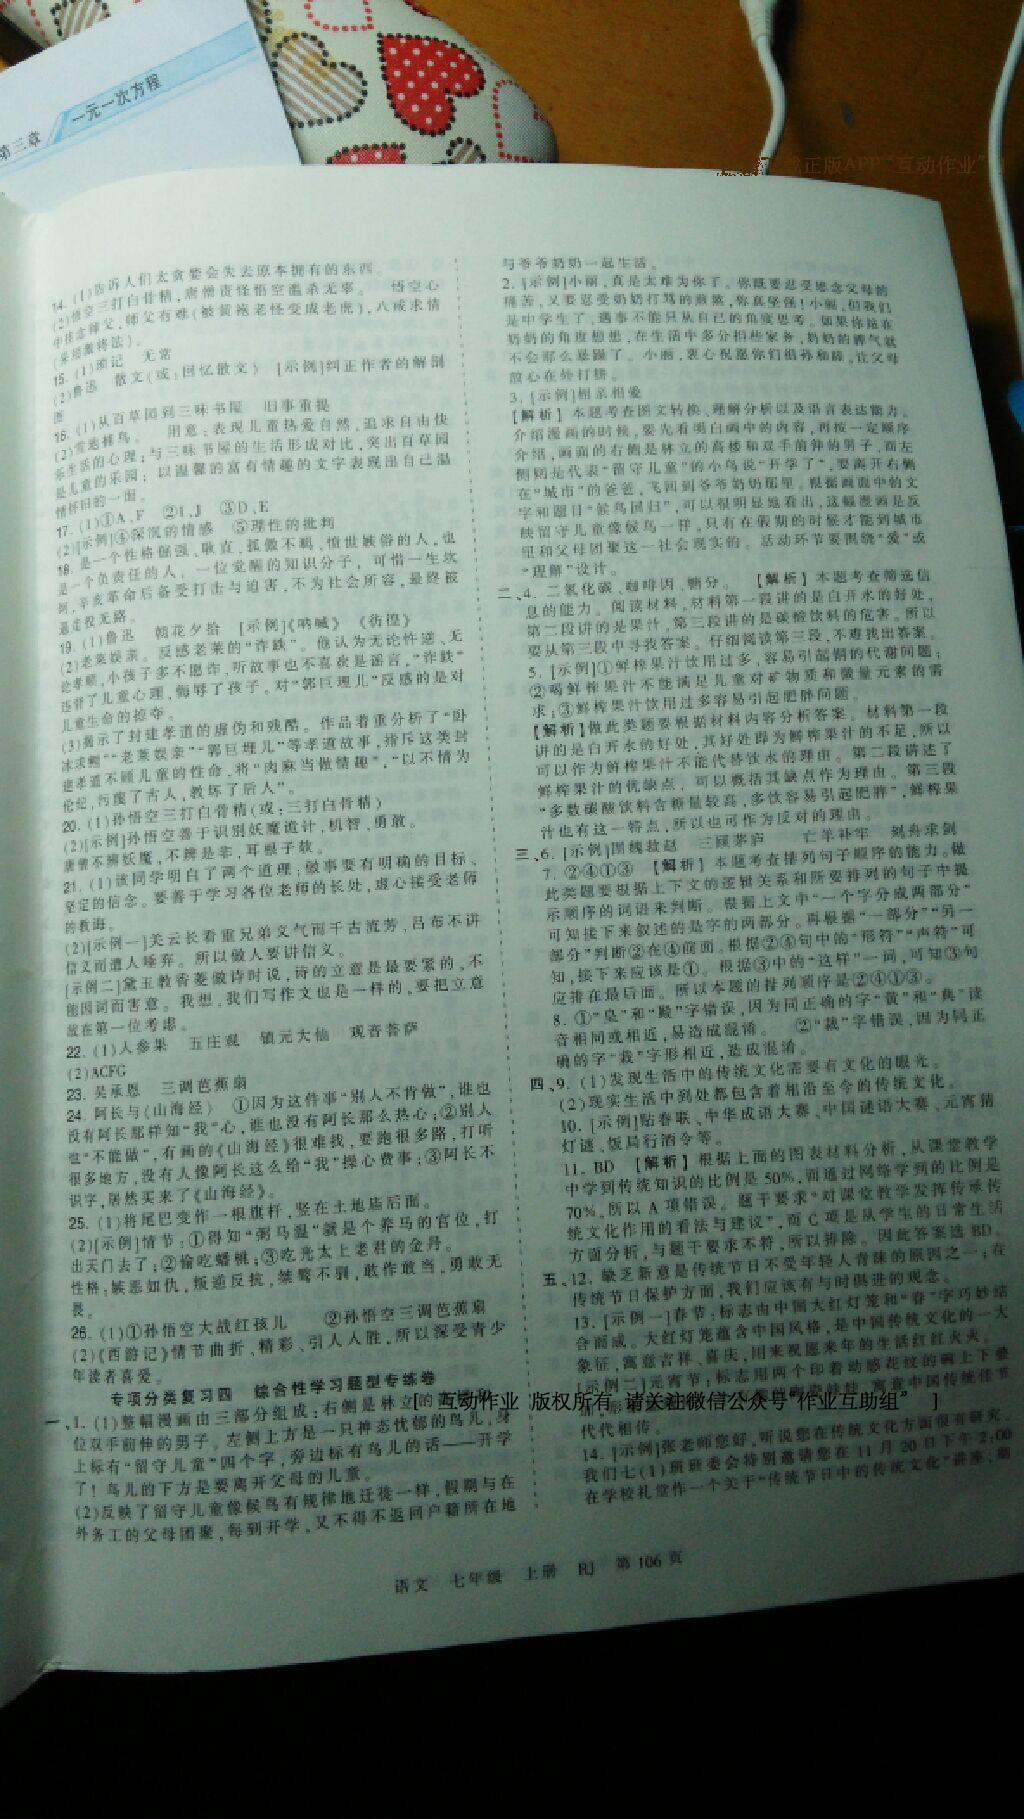 第三章
一元一次方程
正版APP“互动作业”
14. (1)告诉人们太贪婪会失去原本拥有的东西。
(2)悟空三打白骨精,唐僧责怪悟空滥杀无辜。 悟空心
中挂念师父,师父有难(被黄袍老怪变成老虎),八戒求情
(采用激将法)。
15. (1)琐记 无常
(2)鲁迅 散文(或:回忆散文) [示例]纠正作者的解剖
图
16. (1)从百草园到三味书屋 旧事重提
(2)雪地捕鸟。 用意:表现儿童热爱自然,追求自由快
乐生活的心理;与三味书屋的生活形成对比,突出百草园
是儿童的乐园; 以温馨的富有情趣的文字表现出自己温
情怀旧的一面。
17. (1)①A、F ②I、J ③D、E
(2)[示例]④深沉的情感 ⑤理性的批判
18. 是一个性格倔强、耿直、孤傲不羁、愤世嫉俗的人,也
是一个负责任的人。一位觉醒的知识分子, 可惜一生坎
坷,辛亥革命后备受打击与迫害,不为社会所容,最终被
逼走投无路。
19. (1)鲁迅 朝花夕拾 [示例]《呐喊》 《彷徨》
(2)老莱娱亲。反感老莱的“诈跌”。他认为无论忤逆、无
论孝顺,小孩子多不愿诈,听故事也不喜欢是谣言,“诈跌”
违背了儿童心理,侮辱了孩子。对“郭巨埋儿”反感的是对
儿童生命的掠夺。
(3)揭示了封建孝道的虚伪和残酷。作品着重分析了“卧
冰求鲤”“老莱娱亲”“郭巨埋儿”等孝道故事,指斥这类封
建孝道不顾儿童的性命,将“肉麻当做情趣”,“以不情为
伦纪,污蔑了古人,教坏了后人”。
20. (1)孙悟空三打白骨精(或:三打白骨精)
(2)[示例]孙悟空善于识别妖魔诡计,机智,勇敢。
唐僧不辨妖魔,不辨是非,耳根子软。
21. (1)该同学明白了两个道理:做事要有明确的目标、
坚定的信念。要善于学习各位老师的长处,虚心接受老师
的教诲。
(2)[示例一]关云长看重兄弟义气而千古流芳,吕布不讲
信义而遭人唾弃。所以做人要讲信义。
[示例二]黛玉教香菱做诗时说,诗的立意是最要紧的,不
能因词而害意。我想,我们写作文也是一样的,要把立意
放在第一位考虑。
22. (1)人参果 五庄观 镇元大仙 观音菩萨
(2)ACFG
23. 吴承恩 三调芭蕉扇
24. 阿长与《山海经》 ①因为这件事“别人不肯做”,谁也
没有阿长那样知“我”心,谁也没有阿长那么热心;②别人
也“不能做”,有画的《山海经》很难找,要跑很多路,打听
很多地方,没有人像阿长这么给“我”操心费事;③阿长不
识字,居然买来了《山海经》。
25. (1)将尾巴变作一根旗杆,竖在土地庙后面。
(2)[示例]情节:①得知“弼马温”就是个养马的官位,打
出天门去了;②偷吃蟠桃;③吃光太上老君的金丹。
性格:嫉恶如仇,叛逆反抗,桀骜不驯,敢作敢当,勇敢无
畏。
26. (1)①孙悟空大战红孩儿 ②孙悟空三调芭蕉扇
(2)《西游记》情节曲折、精彩、引人入胜,所以深受青少
年读者喜爱。
专项分类复习四 综合性学习题型专练卷
一、1. (1)整幅漫画由三部分组成:右侧是林立的
位双手前伸的男子。左侧上方是一只神态忧郁的鸟儿,身
上标有“留守儿童”四个字,旁边标有鸟儿的话——开学
了!鸟儿的下方是要离开父母的儿童。
(2)反映了留守儿童像候鸟有规律地迁徙一样,假期与在
外务工的父母团聚,每到开学,又不得不返回户籍所在地
与爷爷奶奶一起生活。
2. [示例]小丽,真是太难为你了。你既要忍受思念父母的
痛苦,又要忍受奶奶打骂的煎熬,你真坚强!小丽,但我们
是中学生了,遇事不能只从自己的角度思考。如果你站在
奶奶的角度想想,在生活中多分担些家务,奶奶的脾气就
不会那么暴躁了。小丽,衷心祝愿你们祖孙和睦,让父母
放心在外打拼。
3. [示例]相亲相爱
[解析] 本题考查图文转换、理解分析以及语言表达能力。
介绍漫画的时候,要先看明白画中的内容,再按一定顺序
介绍,画面的右侧是林立的高楼和双手前伸的男子,而左
侧则是代表“留守儿童”的小鸟说“开学了”,要离开右侧
在“城市”的爸爸,飞回到爷爷奶奶那里。根据画面中的文
字和题目“候鸟回归”,可以很明显地看出,这幅漫画是反
映留守儿童像候鸟一样,只有在假期的时候才能到城市
里和父母团聚这一社会现实的。活动环节要围绕“爱”或
“理解”设计。
二、4. 二氧化碳、咖啡因、糖分。 [解析] 本题考查筛选信
息的能力。阅读材料,材料第一段讲的是白开水的好处,
第二段讲的是果汁,第三段讲的是碳酸饮料的危害。所以
要从第三段中寻找答案。仔细阅读第三段,不难找出答案。
5. [示例]①鲜榨果汁饮用过多,容易引起糖的代谢问题;
②喝鲜榨果汁不能满足儿童对矿物质和微量元素的需
求;③鲜榨果汁饮用过多容易引起肥胖问题。
[解析]做此类题要根据材料内容分析答案。材料第一段
讲的是白开水的好处,其好处即为鲜榨果汁的不足,所以
可以作为鲜榨果汁不能代替饮水的理由。第二段讲述了
鲜榨果汁的优缺点, 可以概括其缺点作为理由。第三段
“多数碳酸饮料含糖量较高,多饮容易引起肥胖”,鲜榨果
汁也有这一特点,所以也可作为反对的理由。
三、6. [示例]围魏救赵 三顾茅庐 亡羊补牢 刻舟求剑
7. ②④①③ [解析] 本题考查排列句子顺序的能力。做
此类题要根据上下文的逻辑关系和所要排列的句子中提
示顺序的词语来判断。根据上文中“一个字分成两部分”
可知接下来叙述的是字的两部分。再根据“一部分”“另一
部分”判断②在④前面。根据②④句中的“形符”“声符”可
知,接下来应该是①。根据③中的“这样”一词,可知③句
应排在最后面。所以本题的排列顺序是②④①③。
8. ①“皇”和“殿”字错误,因为同正确的字“黄”和“典”读
音相同或相近,易造成混淆。 ②“裁”字错误,因为同正
确的字“栽”字形相近,造成混淆。
四、9. (1)发现生活中的传统文化需要有文化的眼光。
(2)现实生活中到处都包含着相沿至今的传统文化。
10. [示例]贴春联、中华成语大赛、中国谜语大赛、元宵猜
灯谜、饭局行酒令等。
11. BD [解析] 根据上面的图表材料分析,从课堂教学
中学到传统知识的比例是 50%,而通过网络学到的比例是
70%,所以 A 项错误。题干要求“对课堂教学发挥传承传
统文化作用的看法与建议”,而 C 项是从学生的日常生活
方面分析,与题干要求不符,所以排除。因此答案选 BD。
五、12. 缺乏新意是传统节日不受年轻人青睐的原因之一;在
传统节日保护方面,我们应该有与时俱进的观念。
13. [示例一]春节:标志由中国大红灯笼和“春”字巧妙结
合而成。大红灯笼蕴含中国风格,是中国传统文化的一大
象征,寓意吉祥、喜庆,用来祝愿来年的生活红红火火。
[示例二]元宵节:标志用两个印着动感花纹的碗上下叠
寓意中国传统佳节
[ 互动作业 版权所有 请关注微信公众号“作业互助组” ]
代代相传。
14. [示例]张老师您好,听说您在传统文化方面很有研究。
我们七(1)班班委会特别邀请您在 11 月 20 日下午 2:00
在学校礼堂作一个关于“传统节日中的传统文化”讲座,期
语文 七年级 上册 RJ 第 106 页